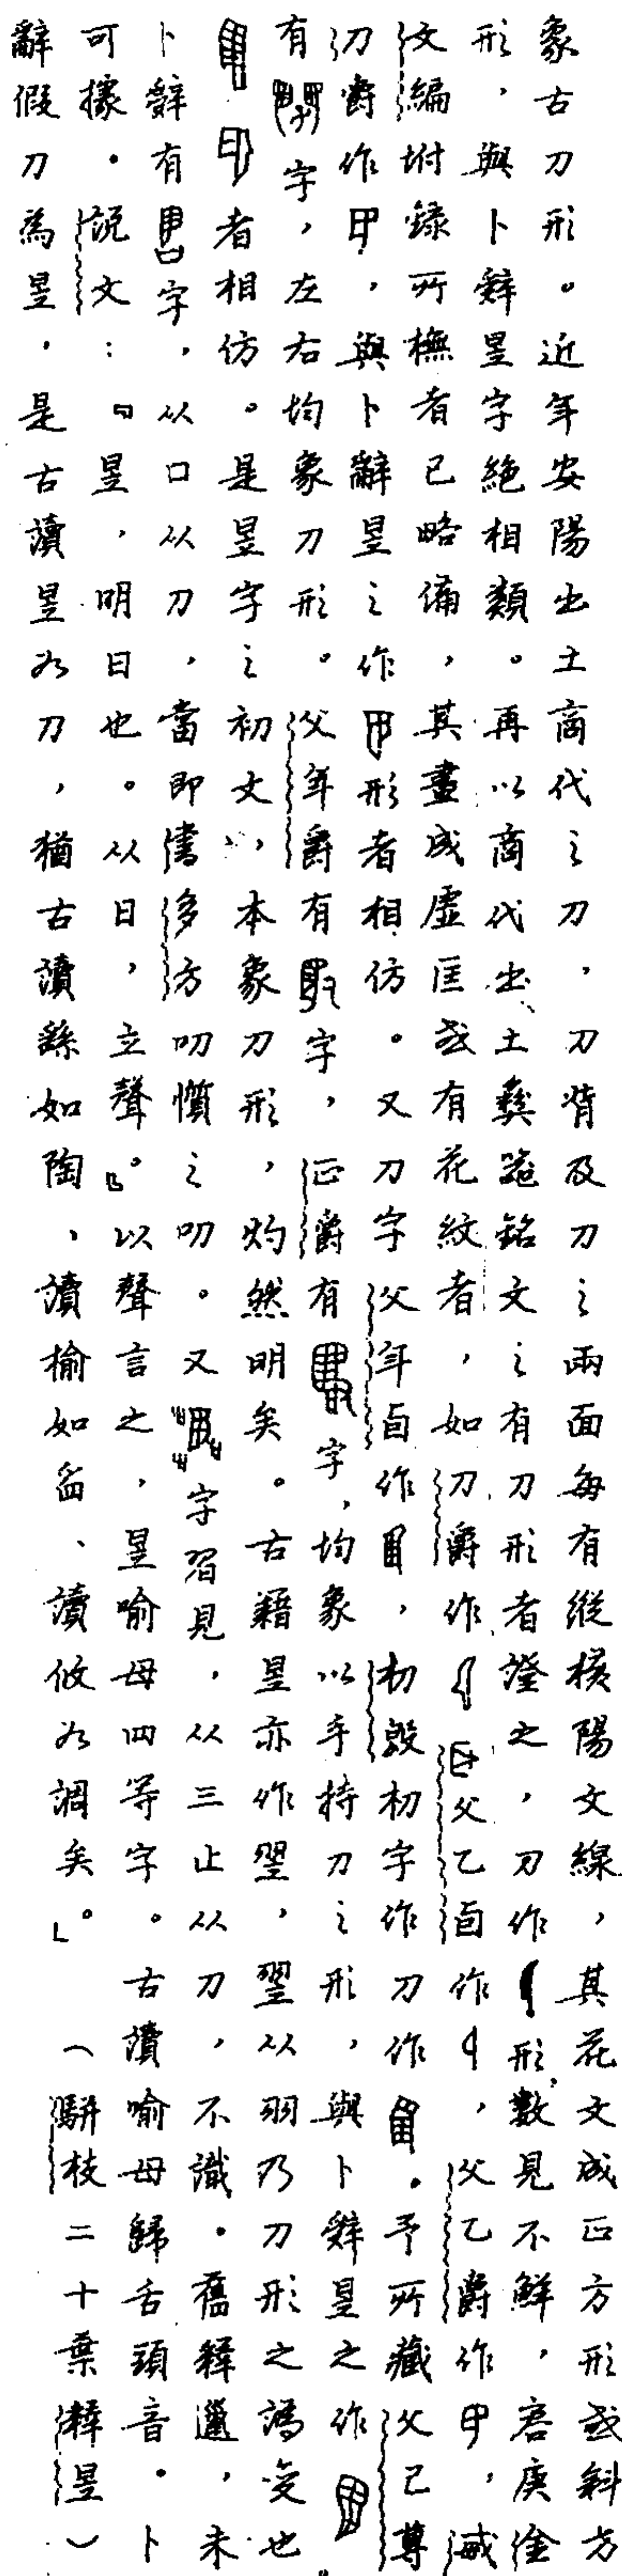 象古刀形。近年安陽出土商代之刀，刀背及刀之兩面每有縱橫陽文線，其花文成正方形或斜方
形，與卜辭昱字絕相類。再以商代出土彝器銘文之有刀形者證之，刀作形，數見不鮮，容庚金
文編坿錄所橅者已略備，其畫成虛匡或有花紋者，如刀爵作父乙卣作，父乙爵作，
刀爵作，與卜辭昱之作形者相仿。又刀字父年卣作，初殷初字作刀作。予所藏父己尊
有字，左右均象刀形。父年爵有字，正爵有字，均象以手持刀之形，與卜辭昱之作
者相仿。是昱字之初文，本象刀形，灼然明矣。古籍昱亦作翌，翌从羽乃刀形之譌變也。
卜辭有字，从口从刀，當即書多方叨懫之叨。又字習見，从三止从刀，不識。舊釋邋，未
可據。說文：『昱，明日也。从日，立聲』。以聲言之，昱喻母四等字。古讀喻母歸舌頭音。卜
辭假刀為昱，是古讀昱如刀，猶古讀繇如陶，讀揄如舀、讀攸如調矣。」（駢枝二十葉釋昱）